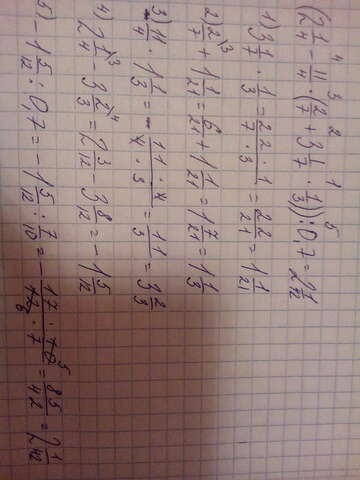 4 3 2 1 5
(2 1/4 - 11/4 · (2/7 + 3 1/7 · 1/3)) : 0,7 = 2 1/12
1) 3 1/7 · 1/3 = 22 · 1/7 · 3 = 22/21 = 1 1/21
2) 2/7 \3 + 1 1/21 = 6/21 + 1 1/21 = 1 7/21 = 1 1/3
3) 11/4 · 1 1/3 = 11 · 4/4 · 3 = 11/3 = 3 2/3
4) 2 1/4 \3 - 3 2/3 \4 = 2 3/12 - 3 8/12 = - 1 5/12
5) - 1 5/12 : 0,7 = - 1 5/12 : 7/10 = - 17 · 10 5/12 6 · 7 = 85/42 = 2 1/42